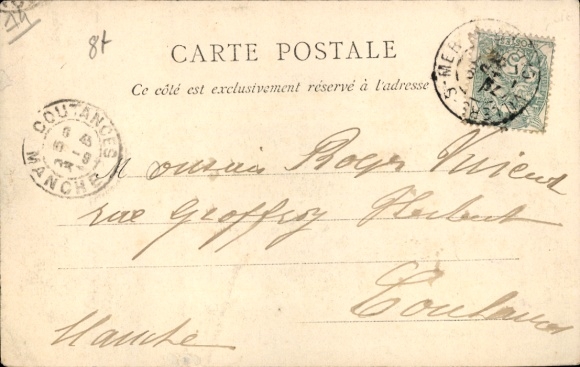 84
CARTE POSTALE
Ce côté est exclusivement réservé à l'adresse
COUTANCES
MANCHE
Monsieur Roger
rue Geoffroy Herbert
Coutances
Manche